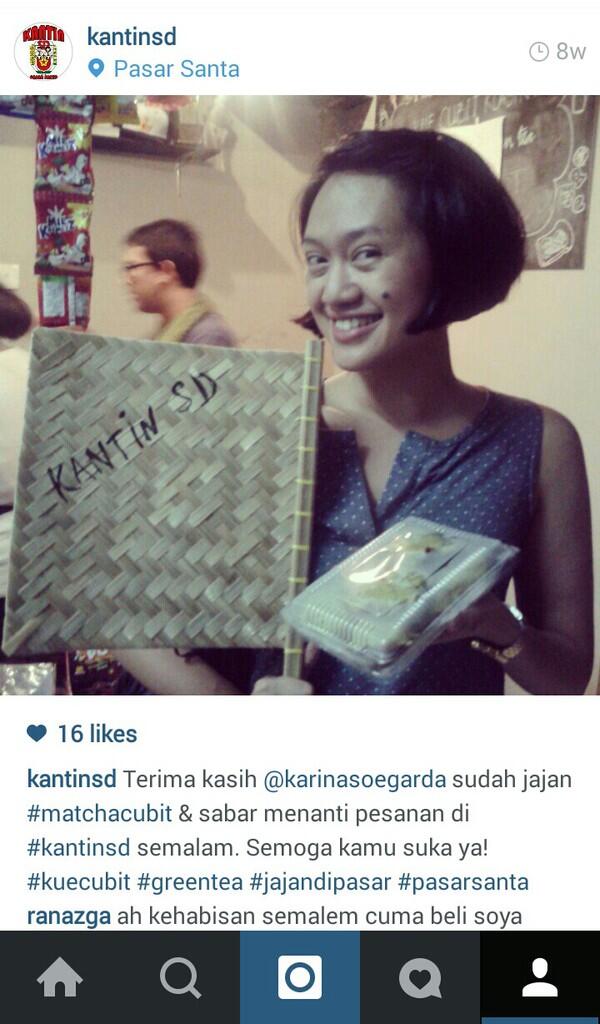 KANTIN
kantinsd
Pasar Santa
8w
KANTIN SD
16 likes
kantinsd Terima kasih @karinasoegarda sudah jajan
#matchacubit & sabar menanti pesanan di
#kantinsd semalam. Semoga kamu suka ya!
#kuecubit #greentea #jajandipasar #pasarsanta
ranazga ah kehabisan semalem cuma beli soya